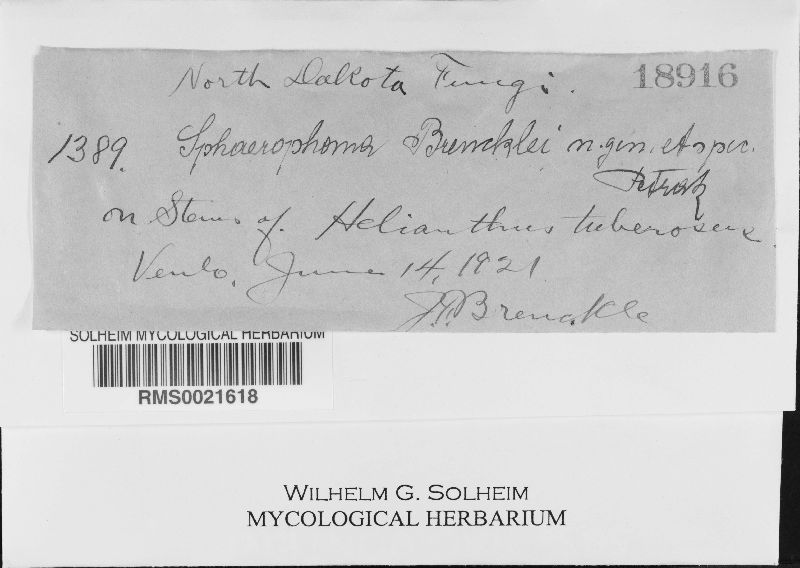 North Dakota Fungi. 18916
1389. Sphaerophoma Brencklei n. gen. et spec.
Petrak
on Stems of Helianthus tuberosus
Venlo, June 14, 1921
J.F. Brenckle
SOLHEIM MYCOLOGICAL HERBARIUM
RMS0021618
WILHELM G. SOLHEIM
MYCOLOGICAL HERBARIUM